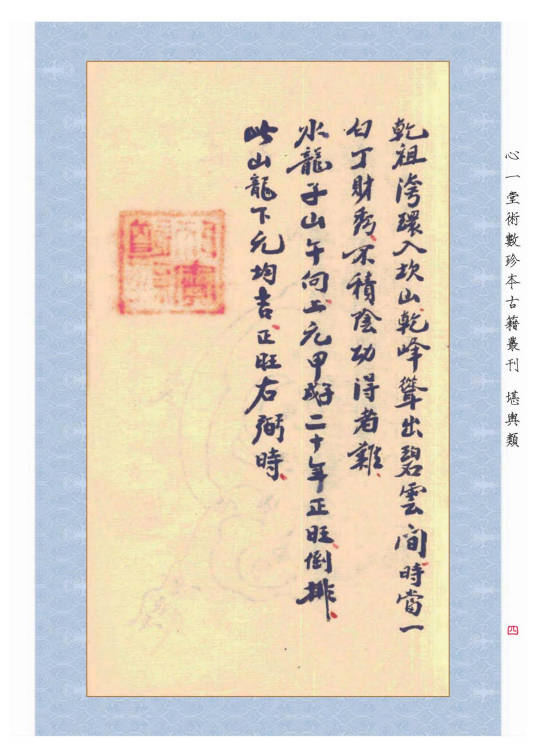 心一堂術數珍本古籍叢刊 堪輿類
乾祖湾環入坎山乾峰聳出碧雲间時當一
白丁財秀不積陰功得者難
水龍子山午向上元甲二十年正旺倒排
此山龍下元均吉正旺右弼時
四